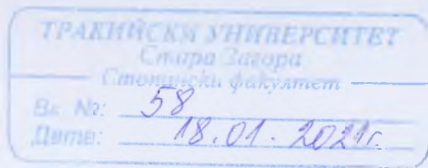 ТРАКИЙСКИ УНИВЕРСИТЕТ
Стара Загора
Стопански факултет
Вх. №: 58
Дата: 18.01.2021г.